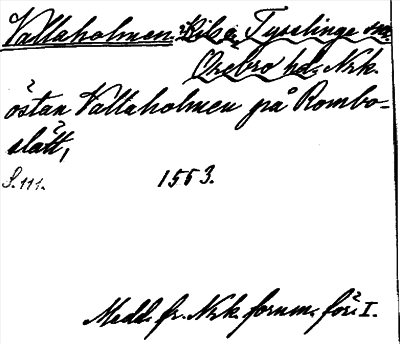 Vallaholmen Tysslinge sn.
Örebro hd. Nrk.
östan Vallaholmen på Rombo-
slätt,
S. 111. 1553.
Medd. fr. Nrk. fornm. för. I.